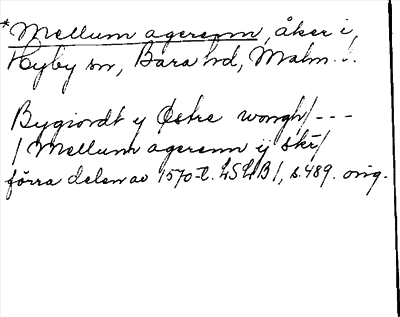 *Mellum agerenn, åker i,
Hyby sn, Bara hd, Malm. l.
Bygiordt y Østre wongh/ ---
/ Mellum agerenn ij skr/
förra delen av 1570-t. LSLB1, s. 489. orig.